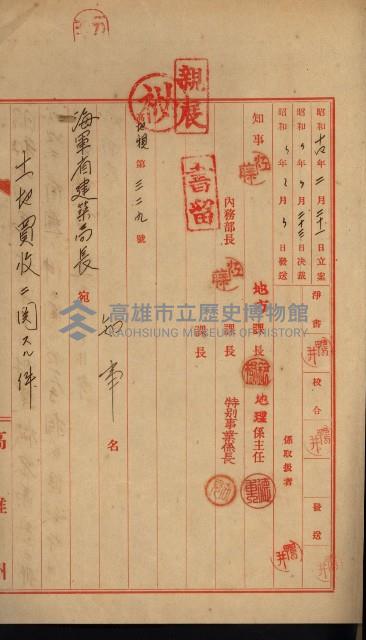 昭和十六年二月二十一日立案
昭和〃年〃月二十三日決裁
〃年〃月〃日発送
淨書
校合
発送
係取扱者
知事
地方課長
地理係主任
內務部長
課長
特別事業係長
課長
親展
秘
書留
第三二九號
海軍省建築局長
宛
知事
名
土地買收ニ関スル件
高雄州
高雄市立歷史博物館
KAOHSIUNG MUSEUM OF HISTORY